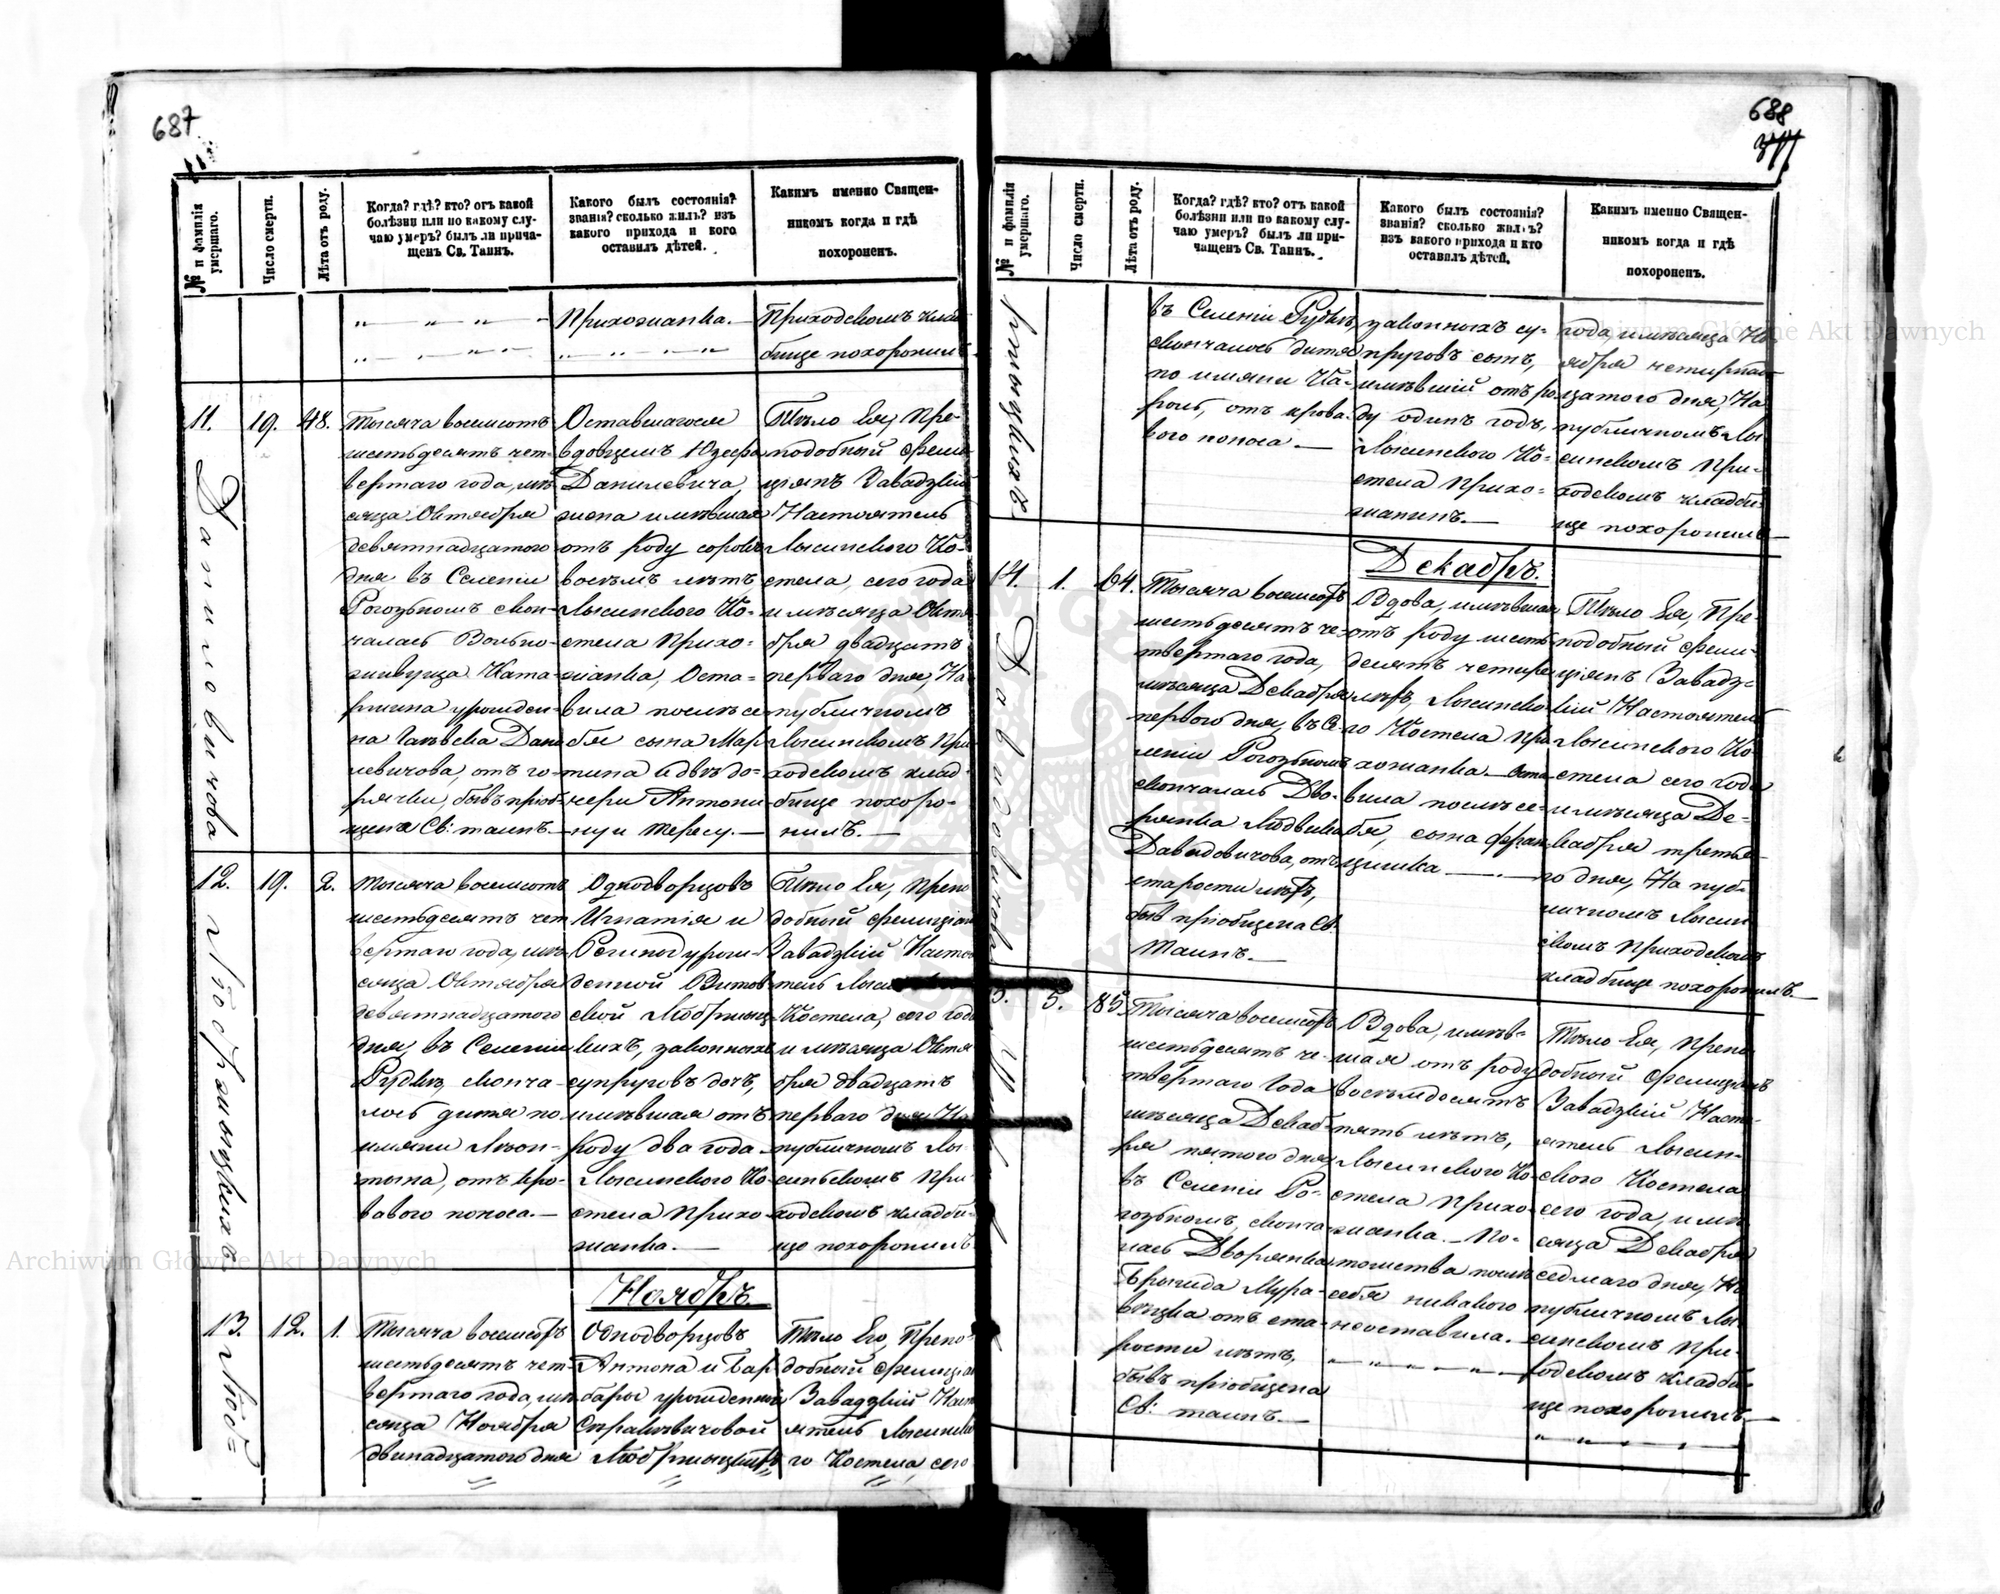 687
№ и фамилія умершаго.
Число смерти.
Лѣта отъ роду.
Когда? гдѣ? кто? отъ какой
болѣзни или по какому слу-
чаю умеръ? былъ ли прича-
щенъ Св. Таинъ.
Какого былъ состоянія?
званія? сколько жилъ? изъ
какого прихода и кого
оставилъ дѣтей.
Какимъ именно Священ-
никомъ когда и гдѣ
похороненъ.
Прихожанка.—
Приходскомъ клад
бище похоронилъ
11.
Даниловичова
19.
48.
Тысяча восемсотъ
шестьдесятъ чет-
вертаго года, мѣ
сяца Октября
девятнадцатого
дня въ Селеніи
Рогозьномъ скон-
чалась Вольно-
живуща Ката-
ржина урожден-
на
левичова, отъ го-
рячки, бывъ пріоб-
щена Св: таинъ.—
Оставшагося
вдовцемъ Юзефа
Данилевича,
жена имѣвшая
отъ роду сорокъ
восемъ лѣтъ
Лысинского Ко-
стела Прихо-
жанка, Оста-
вила послѣ се
бя сына Мар
тина и двѣ до-
чери Антони
ну и Тересу.—
Тѣло Ея, Пре-
подобный Фели
ціянъ Завадзкій
Настоятель
Лысинского Ко-
стела, сего года
и мѣсяца Октя
бря двадцать
перваго дня, На
публичномъ
Лысинскомъ При
ходскомъ клад-
бище похоро-
нилъ.—
12.
19.
2.
Тысяча восемсотъ
шестьдесятъ чет
вертаго года, мѣ
сяца Октября
девятнадцатого
дня, въ Селеніи
Рудкѣ, сконча-
лось дитя по
имяни
отъ кро-
вавого поноса.—
Однодворцовъ
Игнатія и
урож-
денной
ской
кихъ, законныхъ
супруговъ дочь,
имѣвшая отъ
роду два года
Лысинского Ко
стела Прихо
жанка.—
Тѣло Ея, Препо
добный Фелиціан
Завадзкій Насто
тель
Костела, сего года
и мѣсяца Октя
бря двадцать
перваго дня На
публичномъ Лы
синьскомъ При
ходскомъ кладби-
ще похоронилъ
Ноябрь.
13.
12.
1.
Тысяча восемсотъ
шестьдесятъ чет-
вертаго года, мѣ
сяца Ноября
двѣнадцатого дня
Однодворцовъ
Антона и Бар
бары урожденной
Тѣло Его, Препо
добный Фелиціан
Завадзкій Наст
ятель Лысинско
го Костела, сего
688
№ и фамилія умершаго.
Число смерти.
Лѣта отъ роду.
Когда? гдѣ? кто? отъ какой
болѣзни или по какому слу-
чаю умеръ? былъ ли при-
чащенъ Св. Таинъ.
Какого былъ состоянія?
званія? сколько жилъ?
изъ какого прихода и кто
оставилъ дѣтей.
Какимъ именно Священ-
никомъ когда и гдѣ
похороненъ.
въ Селеніи Рудкѣ,
скончалось дитя
по имяни Ка-
роль, отъ крова-
вого поноса.—
законныхъ су-
пруговъ сынъ,
имѣвшій отъ ро
ду одинъ годъ,
Лысинского Ко-
стела Прихо-
жанинъ.—
года, и мѣсяца Но
ября четырнад
цатого дня, На
публичномъ Лы
синскомъ При-
ходскомъ кладби
ще похоронилъ—
Декабрь.
14.
Давидовичова
1.
64.
Тысяча восемсотъ
шестьдесятъ че-
твертаго года,
мѣсяца Декабря
первого дня, въ Се
леніи Рогозьномъ
скончалась Дво-
рянка Людвика
Давидовичова, отъ
старости лѣтъ,
бывъ пріобщена Св:
Таинъ.—
Вдова, имѣвшая
отъ роду шесть
десятъ четыре
лѣтъ, Лысинско
го Костела При
хожанка.— Оста
вила послѣ се-
бя, сына Фран
цишка.—
Тѣло Ея, Пре-
подобный Фели-
ціянъ Завадз-
кій Настоятель
Лысинского Ко-
стела сего года
и мѣсяца Де-
кабря третья
го дня, На пуб-
личномъ Лысин
скомъ Приходскомъ
кладбище похоронилъ.—
5.
85.
Тысяча восемсотъ
шестьдесятъ че-
твертаго года
мѣсяца Декаб-
ря пятого дня
въ Селеніи Ро-
гозьномъ, сконча
лась Дворянка
Брыгида Мура-
вская отъ ста-
рости лѣтъ,
бывъ пріобщена
Св: таинъ.—
Вдова, имѣв-
шая отъ роду
восемьдесятъ
пять лѣтъ,
Лысинского Ко-
стела Прихо
жанка.— По-
томства послѣ
себя никакого
неоставила.—
Тѣло Ея, Препо
добный Фелиціянъ
Завадзкій Насто-
ятель Лысин-
ского Костела
сего года, и мѣ-
сяца Декабря
седмаго дня, На
публичномъ Лы
синскомъ При-
ходскомъ кладби
ще похоронилъ—
Archiwum Główne Akt Dawnych
Archiwum Główne Akt Dawnych